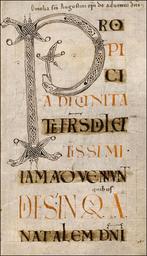 Omelia sci Augustini epi de aduentu dni
PRO
PI
CI
A DIUINITA
TE FRS DILEC
TISSIMI
IAM ADVENIUN
DIES IN Q A
NATALEM DNI